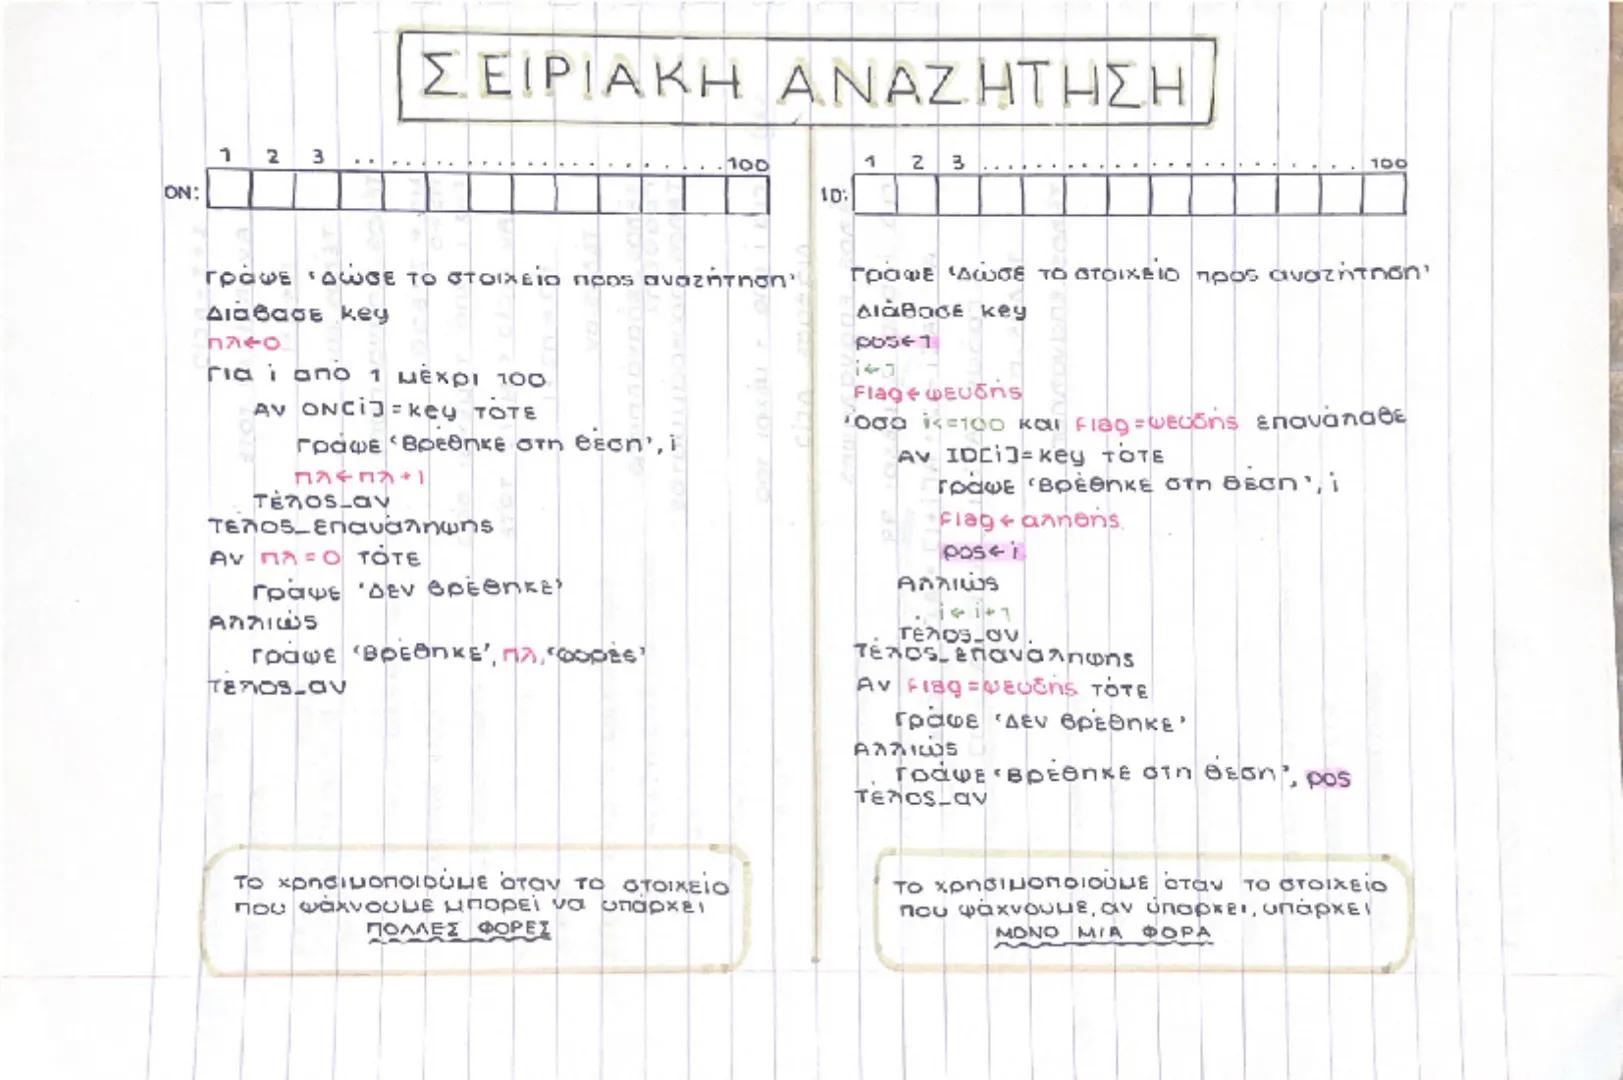 ΣΕΙΡΙΑΚΗ ΑΝΑΖΗΤΗΣΗ
1 2 3 ..................100
ΟΝ:
Γράψε 'Δώσε το στοιχείο προς αναζήτηση'
Διάβασε key
πλ←0
Για i από 1 μέχρι 100
Αν ΟΝ[i]=key τότε
Γράψε 'Βρέθηκε στη θέση', i
πλ←πλ+1
Τέλος_αν
Τέλος_επανάληψης
Αν πλ=0 τότε
Γράψε 'Δεν βρέθηκε'
Αλλιώς
Γράψε 'Βρέθηκε', πλ, 'φορές'
Τέλος_αν
Το χρησιμοποιούμε όταν το στοιχείο
που ψάχνουμε μπορεί να υπάρχει
ΠΟΛΛΕΣ ΦΟΡΕΣ
1 2 3 ..................100
ID:
Γράψε 'Δώσε το στοιχείο προς αναζήτηση'
Διάβασε key
pos←1
i←1
Flag←ψευδής
Όσο i<=100 και Flag=ψευδής επανάλαβε
Αν ID[i]=key τότε
Γράψε 'Βρέθηκε στη θέση', i
Flag←αληθής
pos←i
Αλλιώς
i←i+1
Τέλος_αν
Τέλος_επανάληψης
Αν Flag=ψευδής τότε
Γράψε 'Δεν βρέθηκε'
Αλλιώς
Γράψε 'Βρέθηκε στη θέση', pos
Τέλος_αν
Το χρησιμοποιούμε όταν το στοιχείο
που ψάχνουμε, αν υπάρχει, υπάρχει
ΜΟΝΟ ΜΙΑ ΦΟΡΑ